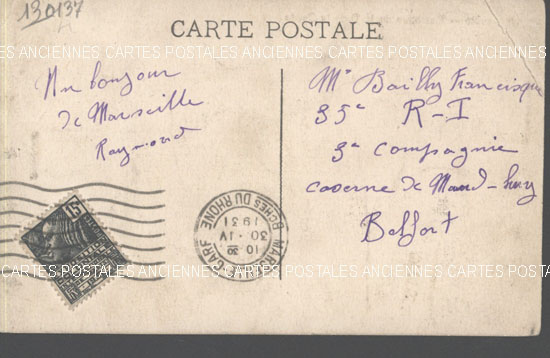 130137
CARTE POSTALE
ANCIENNES CARTES POSTALES ANCIENNES CARTES POSTALES ANCIENNES
Un bonjour
de Marseille
Raymond
Mr Bailly Francisque
35e R-I
3e Compagnie
caserne de
Belfort
15c
MARSEILLE GARE
10 30
30 · IV
1931
BCHES DU RHONE
POSTALES ANCIENNES CARTES POSTALES ANCIENNES CARTES POSTALES